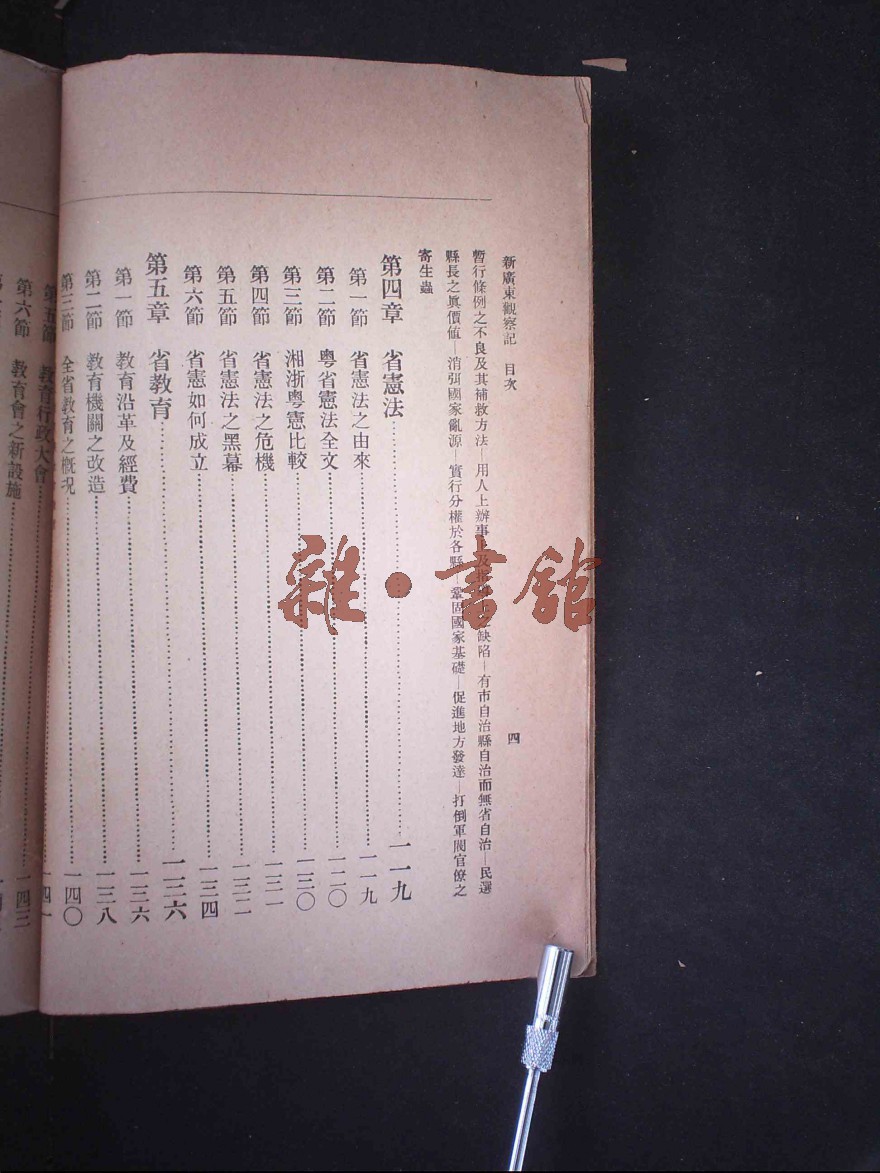 新廣東觀察記 目次 四
暫行條例之不良及其補救方法—用人上辦事上及 缺陷—有市自治縣自治而無省自治—民選
縣長之眞價値—消弭國家亂源—實行分權於各縣—鞏固國家基礎—促進地方發達—打倒軍閥官僚之
寄生蟲
第四章 省憲法……一一九
第一節 省憲法之由來……一一九
第二節 粵省憲法全文……一二〇
第三節 湘浙粵憲比較……一三〇
第四節 省憲法之危機……一三一
第五節 省憲法之黑幕……一三二
第六節 省憲如何成立……一三四
第五章 省教育……一三六
第一節 教育沿革及經費……一三六
第二節 教育機關之改造……一三八
第三節 全省教育之概況……一四〇
第五節 教育行政大會……一四一
第六節 教育會之新設施……一四三
雜·書館